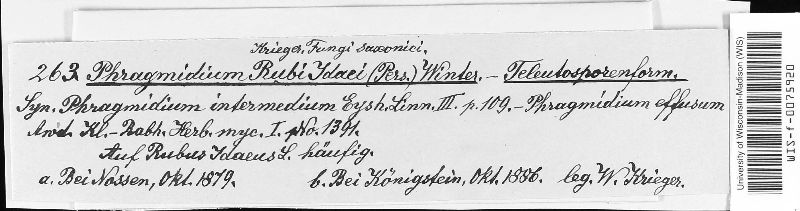 Krieger, Fungi saxonici.
263. Phragmidium Rubi Idaei (Pers.) Winter. – Teleutosporenform.
Syn. Phragmidium intermedium Eysh. Linn. III. p. 109. – Phragmidium effusum
Awd. Kl. – Rabh. Herb. myc. I. No. 1391.
Auf Rubus Idaeus L. häufig.
a. Bei Nossen, Okt. 1879. b. Bei Königstein, Okt. 1886. leg. W. Krieger.
University of Wisconsin-Madison (WIS)
WIS-f-0075920